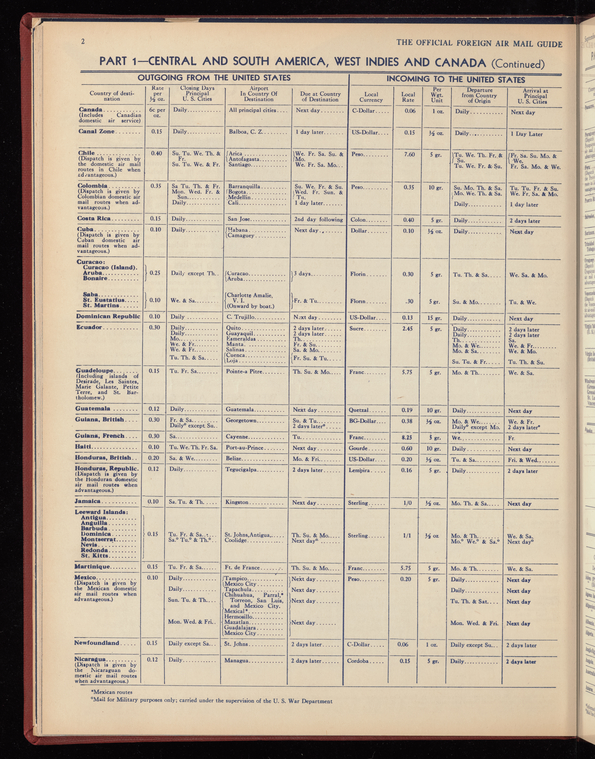 2
THE OFFICIAL FOREIGN AIR MAIL GUIDE
PART 1—CENTRAL AND SOUTH AMERICA, WEST INDIES AND CANADA (Continued)
OUTGOING FROM THE UNITED STATES INCOMING TO THE UNITED STATES
Country of destination Rate per ½ oz. Closing Days Principal U. S. Cities Airport In Country Of Destination Due at Country of Destination Local Currency Local Rate Per Wgt. Unit Departure from Country of Origin Arrival at Principal U. S. Cities
Canada 6c per oz. Daily All principal cities Next day C-Dollar 0.06 1 oz. Daily Next day
(Includes Canadian
domestic air service)
Canal Zone 0.15 Daily Balboa, C. Z. 1 day later US-Dollar 0.15 ½ oz. Daily 1 Day Later
Chile 0.40 Su. Tu. We. Th. & Fr. Arica We. Fr. Sa. Su. & Mo. Peso 7.60 5 gr. Tu. We. Th. Fr. & Su. Fr. Sa. Su. Mo. & We.
(Dispatch is given by
the domestic air mail
routes in Chile when
advantageous.)
Antofagasta
Su. Tu. We. & Fr. Santiago We. Fr. Sa. Mo. Tu. We. Fr. & Su. Fr. Sa. Mo. & We.
Colombia 0.35 Sa Tu. Th. & Fr. Barranquilla Su. We. Fr. & Su. Peso 0.35 10 gr. Su. Mo. Th. & Sa. Tu. Tu. Fr. & Su.
(Dispatch is given by
Colombian domestic air
mail routes when advantageous.)
Mon. Wed. Fr. & Sun. Bogota Wed. Fr. Sun. & Tu. Mo. We. Th. & Sa. We. Fr. Sa. & Mo.
Medellin
Daily Cali 1 day later Daily 1 day later
Costa Rica 0.15 Daily San Jose 2nd day following Colon 0.40 5 gr. Daily 2 days later
Cuba 0.10 Daily Habana Next day Dollar 0.10 ½ oz. Daily Next day
(Dispatch is given by
Cuban domestic air
mail routes when advantageous.)
Camaguey
Curacao:
Curacao (Island)
Aruba 0.25 Daily except Th. Curacao 3 days Florin 0.30 5 gr. Tu. Th. & Sa. We. Sa. & Mo.
Bonaire Aruba
Saba Charlotte Amalie,
St. Eustatius 0.10 We. & Sa. V. I. Fr. & Tu. Florin .30 5 gr. Su. & Mo. Tu. & We.
St. Martins (Onward by boat.)
Dominican Republic 0.10 Daily C. Trujillo Next day US-Dollar 0.13 15 gr. Daily Next day
Ecuador 0.30 Daily Quito 2 days later Sucre 2.45 5 gr. Daily 2 days later
Daily Guayaquil 2 days later Daily 2 days later
Mo. Esmeraldas Th. Th. Sa.
We. & Fr. Manta Fr. & Su. Mo. & We. We. & Fr.
We. & Fr. Salinas Sa. & Mo. Mo. & Sa. We. & Mo.
Tu. Th. & Sa. Cuenca Fr. Su. & Tu. Su. Tu. & Fr. Tu. Th. & Su.
Loja
Guadeloupe 0.15 Tu. Fr. Sa. Pointe-a Pitre Th. Su. & Mo. Franc 5.75 5 gr. Mo. & Th. We. & Sa.
(Including islands of
Desirade, Les Saintes,
Marie Galante, Petite
Terre, and St. Bartholomew.)
Guatemala 0.12 Daily Guatemala Next day Quetzal 0.19 10 gr. Daily Next day
Guiana, British 0.30 Fr. & Sa. Georgetown Su. & Tu. BG-Dollar 0.38 ½ oz. Mo. & We. We. & Fr.
Daily* except Su. 2 days later* Daily* except Mo. 2 days later*
Guiana, French 0.30 Sa. Cayenne Tu. Franc 8.25 5 gr. We. Fr
Haiti 0.10 Tu. We. Th. Fr. Sa. Port-au-Prince Next day Gourde 0.60 10 gr. Daily Next day
Honduras, British 0.20 Sa. & We. Belize Mo. & Fri. US-Dollar 0.20 ½ oz. Tu. & Sa. Fri. & Wed.
Honduras, Republic 0.12 Daily Tegucigalpa 2 days later Lempira 0.16 5 gr. Daily 2 days later
(Dispatch is given by
the Honduran domestic
air mail routes when
advantageous.)
Jamaica 0.10 Sa. Tu. & Th. Kingston Next day Sterling 1/0 ½ oz. Mo. Th. & Sa. Next day
Leeward Islands:
Antigua
Anguilla
Barbuda
Dominica 0.15 Tu. Fr. & Sa. St. Johns, Antigua Th. Su. & Mo. Sterling 1/1 ½ oz Mo. & Th. We. & Sa.
Montserrat Sa.* Tu.* & Th.* Coolidge Next day* Mo.* We.* & Sa.* Next day*
Nevis
Redonda
St. Kitts
Martinique 0.15 Tu. Fr. & Sa. Ft. de France Th. Su. & Mo. Franc 5.75 5 gr. Mo. & Th. We. & Sa.
Mexico 0.10 Daily Tampico Next day Peso 0.20 5 gr. Daily Next day
(Dispatch is given by
the Mexican domestic
air mail routes when
advantageous.)
Mexico City
Daily Tapachula Next day Daily Next day
Sun. Tu. & Th. Chihuahua, Parral,* Torreon, San Luis, and Mexico City. Next day Tu. Th. & Sat. Next day
Mexical*
Hermosillo
Mon. Wed. & Fri. Mazatlan Next day Mon. Wed. & Fri. Next day
Guadalajara
Mexico City
Newfoundland 0.15 Daily except Sa. St. Johns 2 days later C-Dollar 0.06 1 oz. Daily except Su. 2 days later
Nicaragua 0.12 Daily Managua 2 days later Cordoba 0.15 5 gr. Daily 2 days later
(Dispatch is given by
the Nicaraguan domestic
air mail routes
when advantageous.)
*Mexican routes
*Mail for Military purposes only; carried under the supervision of the U. S. War Department